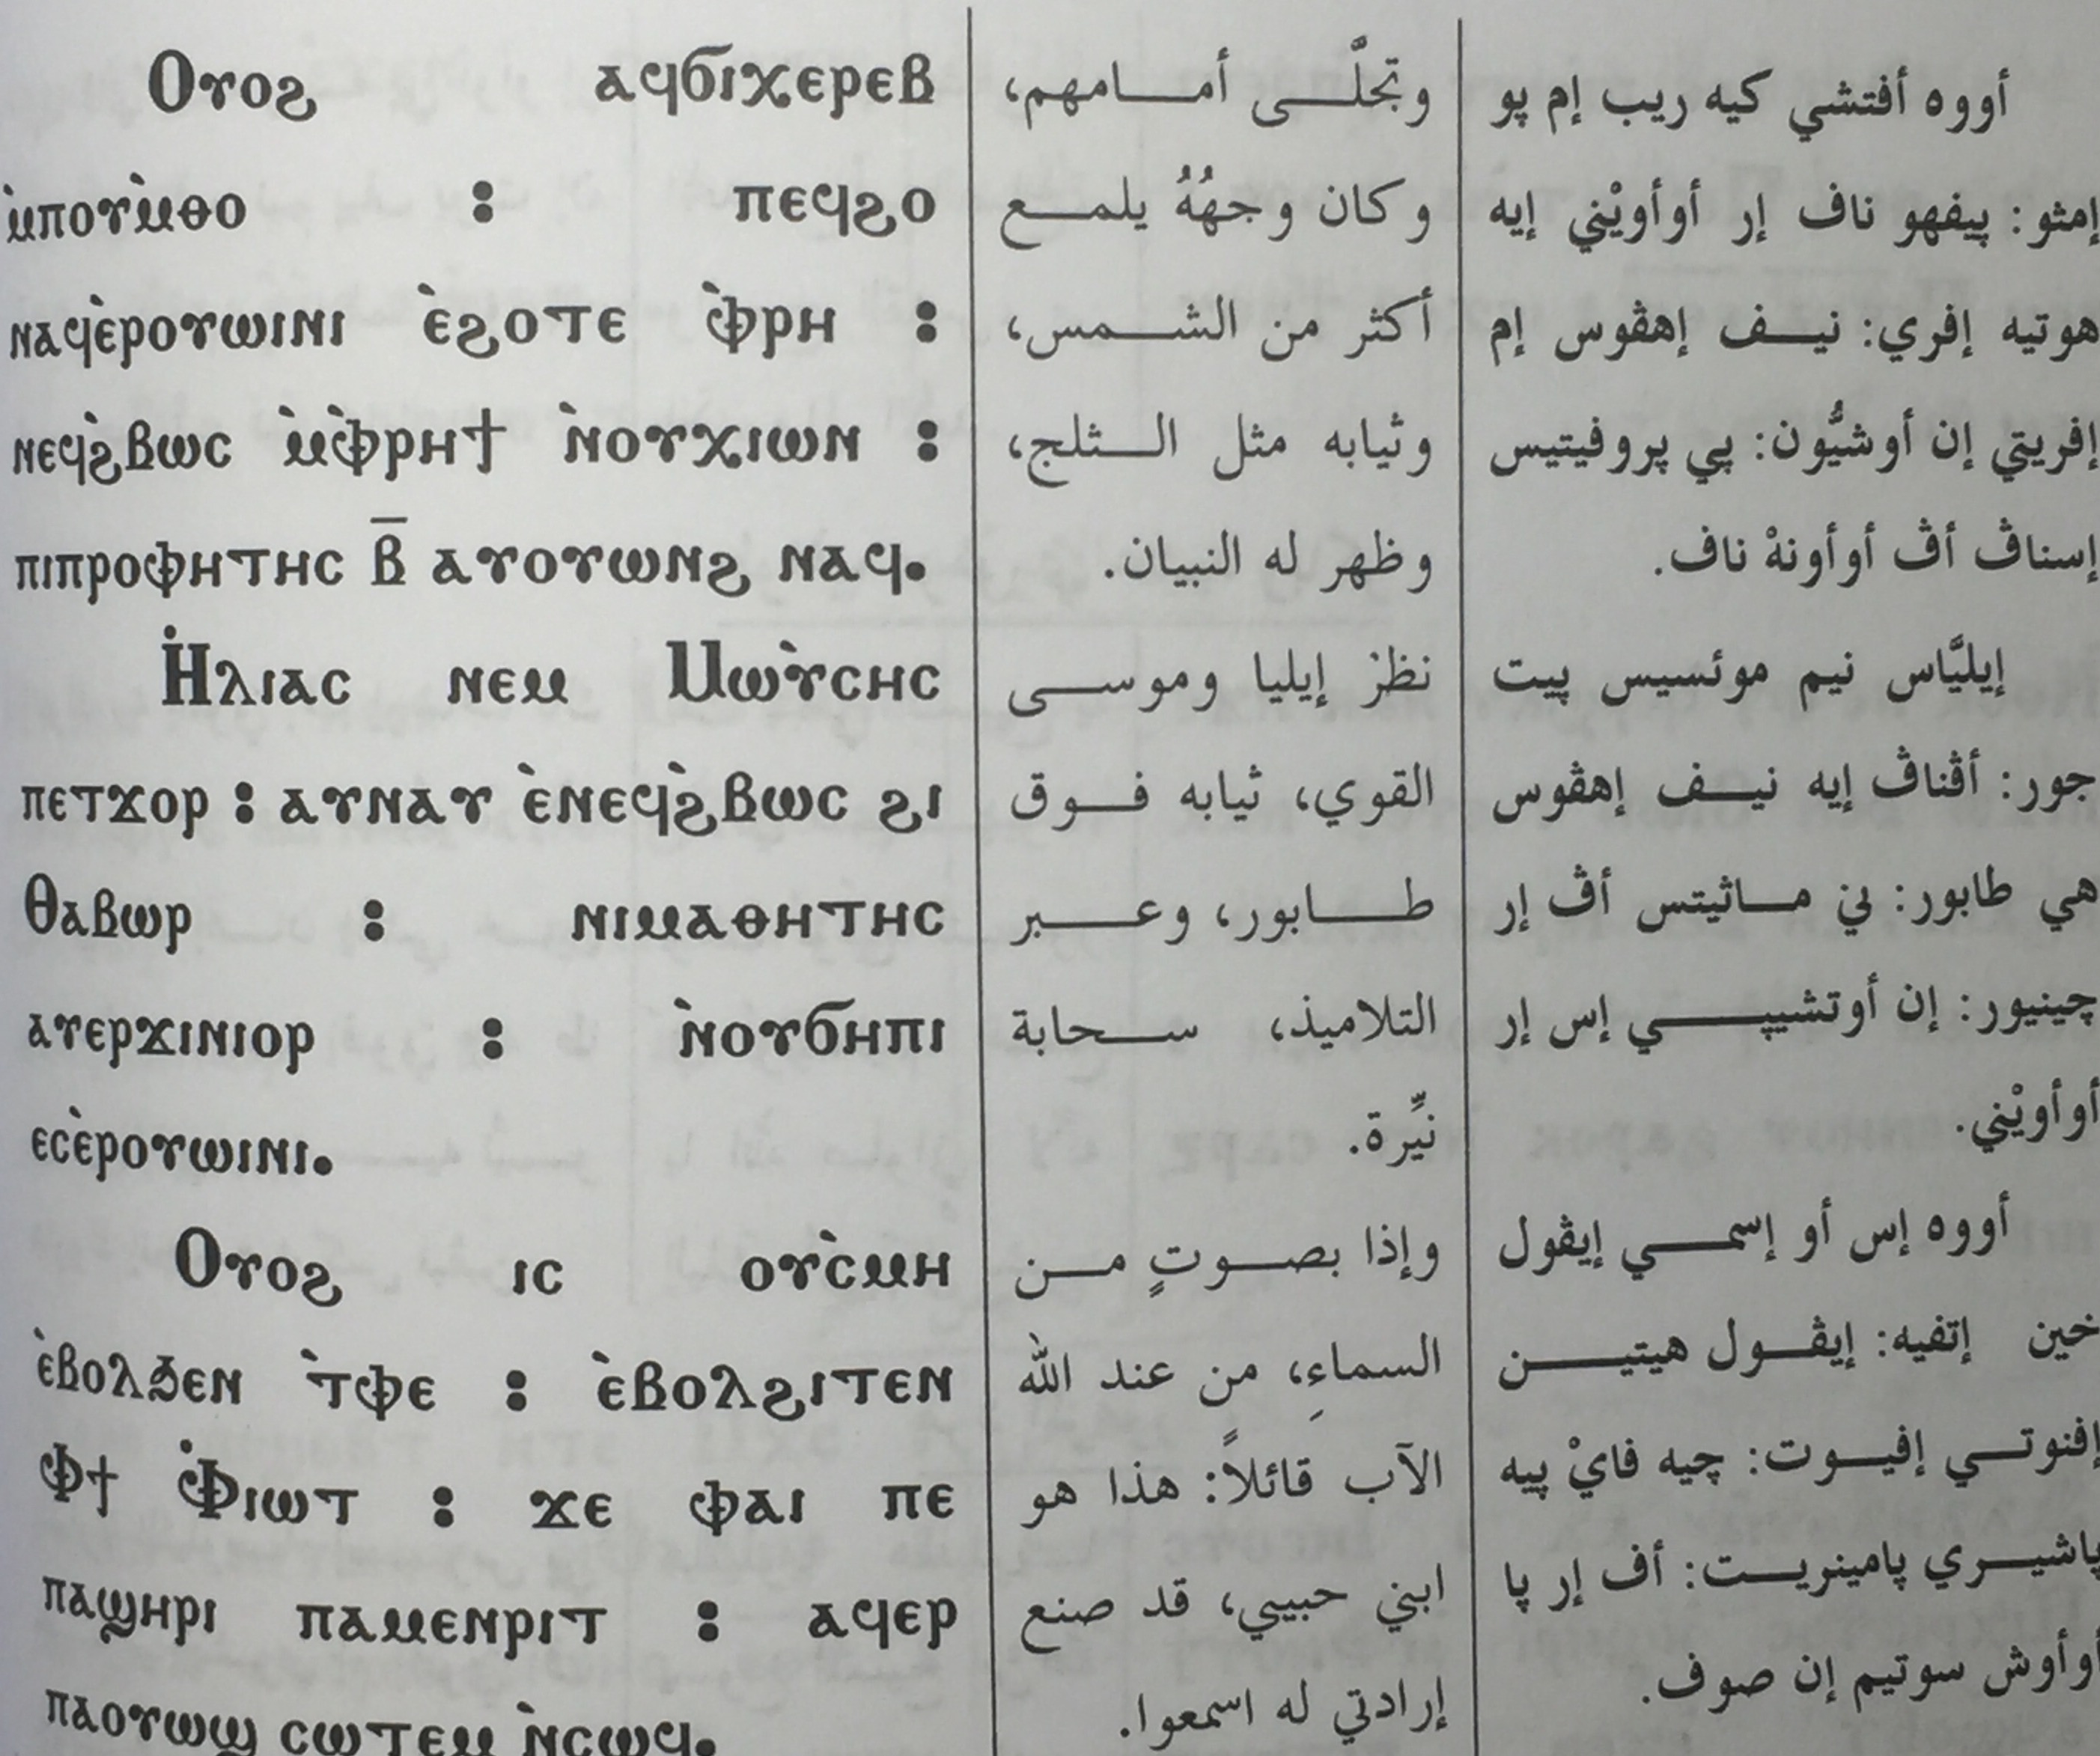 Ⲟⲩⲟϩ ⲁϥϭⲓⲭⲉⲣⲉⲃ
ⲙ̀ⲡⲟⲩⲙ̀ⲑⲟ : ⲡⲉϥϩⲟ
ⲛⲁϥⲉ̀ⲣⲟⲩⲱⲓⲛⲓ ⲉ̀ϩⲟⲧⲉ ⲫ̀ⲣⲏ :
ⲛⲉϥϩ̀ⲃⲱⲥ ⲙ̀ⲫ̀ⲣⲏϯ ⲛ̀ⲟⲩⲭⲓⲱⲛ :
ⲡⲓⲡⲣⲟⲫⲏⲧⲏⲥ ⲃ̅ ⲁⲩⲟⲩⲱⲛϩ ⲛⲁϥ.
Ⲏ̀ⲗⲓⲁⲥ ⲛⲉⲙ Ⲙⲱⲩ̀ⲥⲏⲥ
ⲡⲉⲧϫⲟⲣ : ⲁⲩⲛⲁⲩ ⲉ̀ⲛⲉϥϩ̀ⲃⲱⲥ ϩⲓ
Ⲑⲁⲃⲱⲣ : ⲛⲓⲙⲁⲑⲏⲧⲏⲥ
ⲁⲩⲉⲣϫⲓⲛⲓⲟⲣ : ⲛ̀ⲟⲩϭⲏⲡⲓ
ⲉⲥⲉ̀ⲣⲟⲩⲱⲓⲛⲓ.
Ⲟⲩⲟϩ ⲓⲥ ⲟⲩⲥ̀ⲙⲏ
ⲉ̀ⲃⲟⲗϧⲉⲛ ⲧ̀ⲫⲉ : ⲉ̀ⲃⲟⲗϩⲓⲧⲉⲛ
Ⲫϯ Ⲫ̀ⲓⲱⲧ : ϫⲉ ⲫⲁⲓ ⲡⲉ
ⲡⲁϣⲏⲣⲓ ⲡⲁⲙⲉⲛⲣⲓⲧ : ⲁϥⲉⲣ
ⲡⲁⲟⲩⲱϣ ⲥⲱⲧⲉⲙ ⲛ̀ⲥⲱϥ.
وتجلَّى أمامهم،
وكان وجهُهُ يلمع
أكثر من الشمس،
وثيابه مثل الثلج،
وظهر له النبيان.
نظرَ إيليا وموسى
القوي، ثيابه فوق
طابور، وعبر
التلاميذ، سحابة
نيِّرة.
وإذا بصوتٍ من
السماءِ، من عند الله
الآب قائلاً: هذا هو
ابني حبيبي، قد صنع
إرادتي له اسمعوا.
أووه أفتشي كيه ريب إم پو
إمثو: پيفهو ناف إر أوأويْني إيه
هوتيه إفري: نيف إهڤوس إم
إفريتي إن أوشيُّون: پي پروفيتيس
إسناڤ أڤ أوأونهْ ناف.
إيليَّاس نيم موئسيس پيت
جور: أڤناڤ إيه نيف إهڤوس
هي طابور: ني ماثيتس أڤ إر
چينيور: إن أوتشيپي إس إر
أوأويْني.
أووه إس أو إسمي إيڤول
خين إتفيه: إيڤول هيتين
إفنوتي إفيوت: چيه فايْ پيه
پاشيري پامينريت: أف إر پا
أوأوش سوتيم إن صوف.